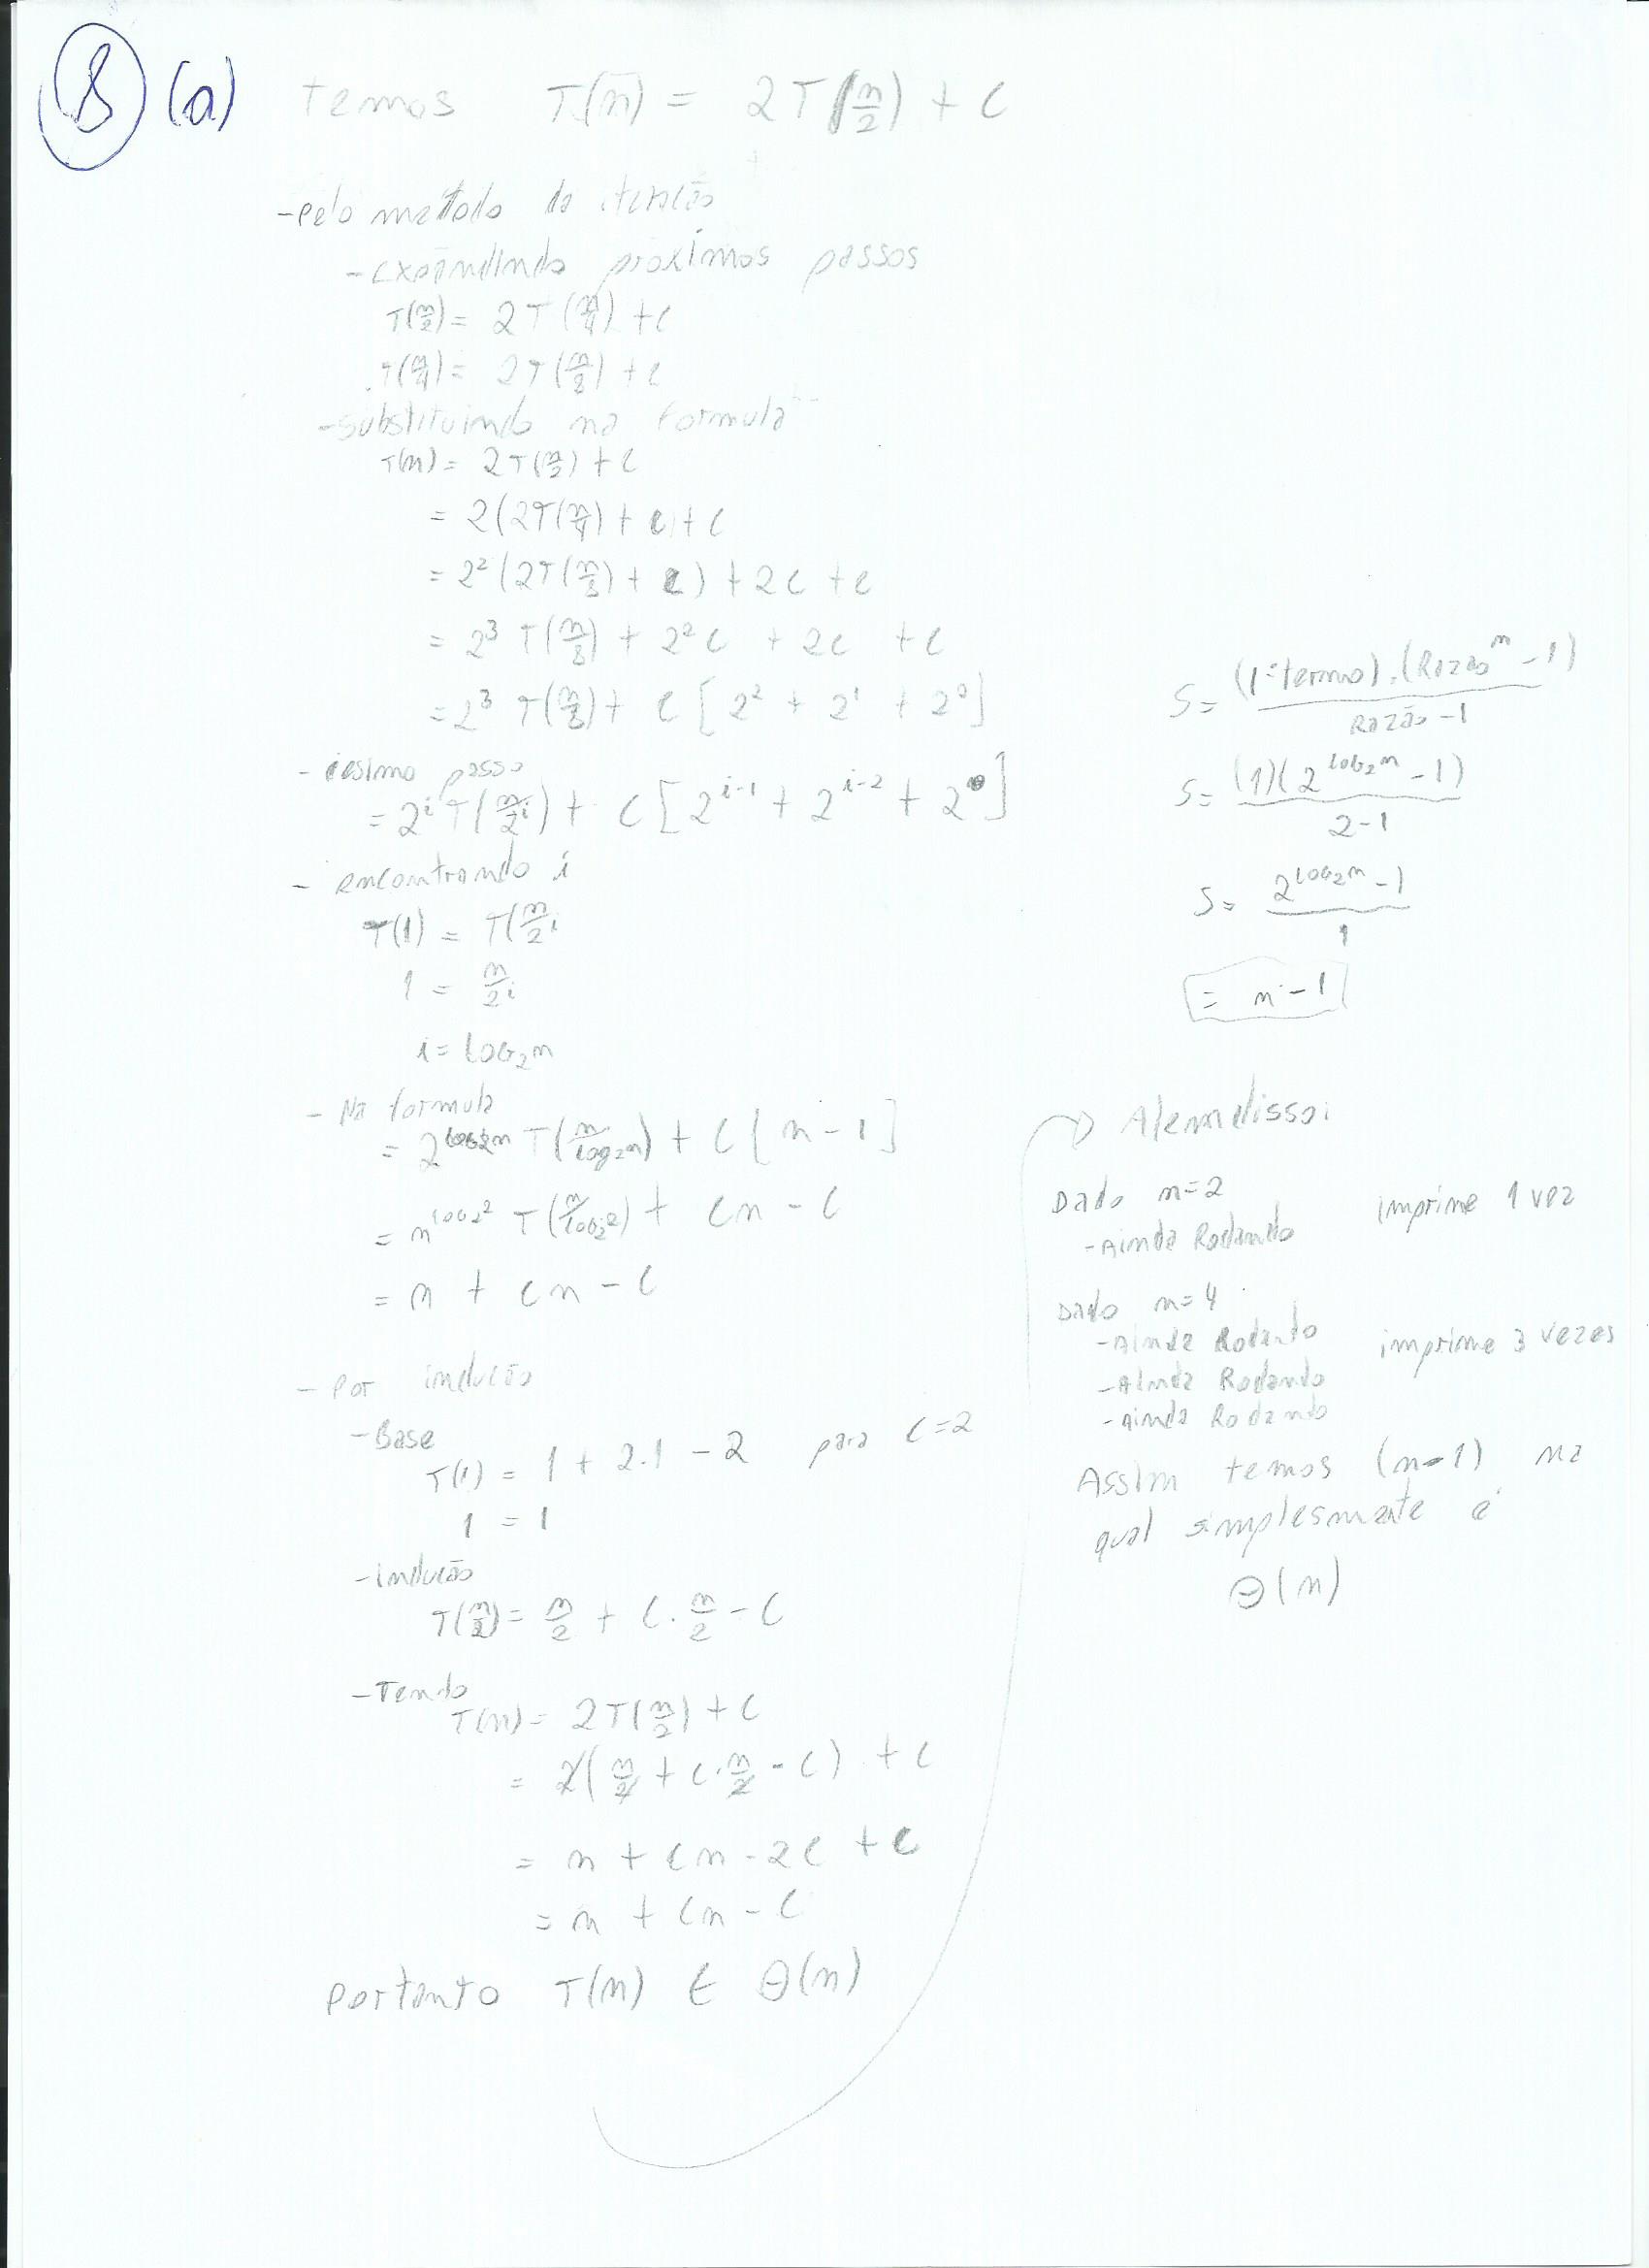 8 (a) temos T(n) = 2T(n/2) + c
-pelo metodo da iteração
-expandindo proximos passos
T(n/2) = 2T(n/4) + c
T(n/4) = 2T(n/8) + c
-substituindo na formula
T(n) = 2T(n/2) + c
= 2(2T(n/4) + c) + c
= 2²(2T(n/8) + c) + 2c + c
= 2³ T(n/8) + 2²c + 2c + c
= 2³ T(n/8) + c [2² + 2¹ + 2⁰]
- iesimo passo
= 2^i T(n/2^i) + c [2^(i-1) + 2^(i-2) + 2^0]
- encontrando i
T(1) = T(n/2^i
1 = n/2^i
i = log₂n
- Na formula
= 2^(log₂n) T(n/log₂n) + c [n - 1]
= n^(log₂2) T(n/log₂2) + cn - c
= n + cn - c
- Por indução
-Base
T(1) = 1 + 2.1 - 2 para c=2
1 = 1
-indução
T(n/2) = n/2 + c.n/2 - c
-Tendo
T(n) = 2T(n/2) + c
= 2(n/2 + c.n/2 - c) + c
= n + cn - 2c + c
= n + cn - c
Portanto T(n) ∈ Θ(n)
S = (1º termo).(Razão^n - 1) / Razão - 1
S = (1)(2^(log₂n) - 1) / 2-1
S = 2^(log₂n) - 1 / 1
= n - 1
Alemdisso:
Dado n=2
-Ainda Rodando imprime 1 vez
Dado n=4
-Ainda Rodando imprime 3 vezes
-Ainda Rodando
-Ainda Rodando
Assim temos (n-1) na
qual simplesmente é
Θ(n)